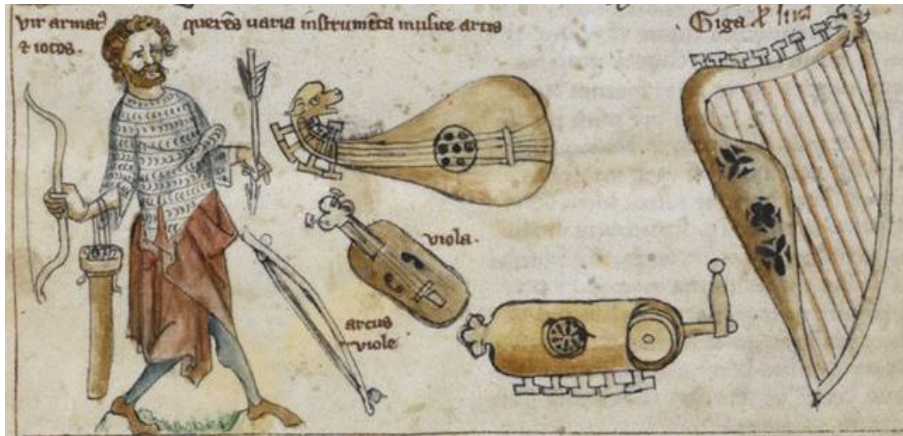 vir armatꝰ querẽs uaria instrumẽta musice artis
⁊ iocos.
Giga ł lira
viola.
arcus
viole